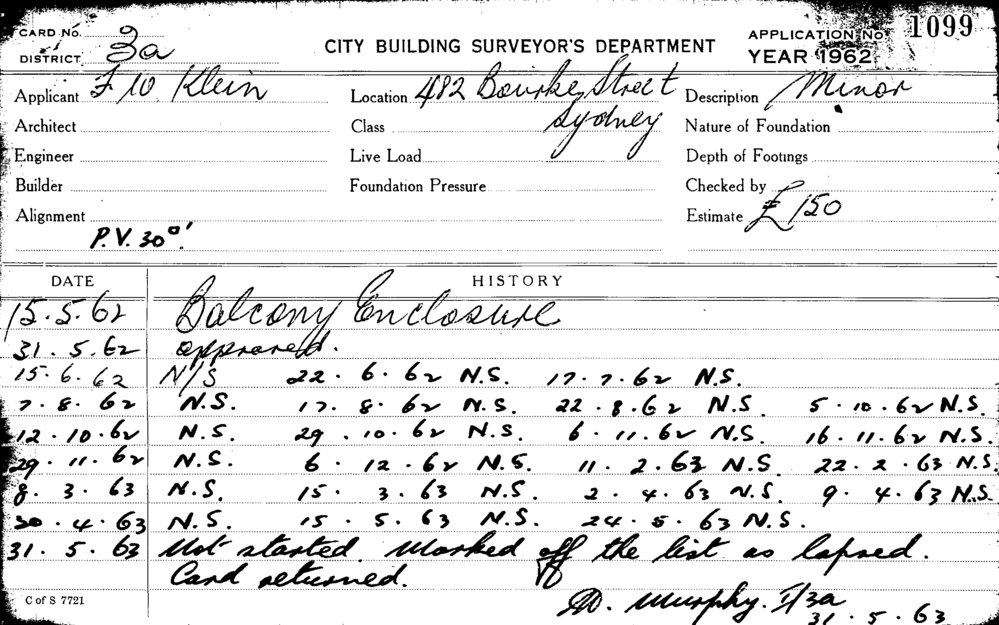 CARD NO. 3a
DISTRICT
CITY BUILDING SURVEYOR'S DEPARTMENT
APPLICATION No 1099
YEAR 1962
Applicant F W Klein
Location 482 Bourke Street Sydney
Description Minor
Architect
Class
Nature of Foundation
Engineer
Live Load
Depth of Footings
Builder
Foundation Pressure
Checked by
Alignment
Estimate £150
P.V. 30°'.
DATE HISTORY
15.5.62 Balcony Enclosure
31.5.62 approved.
15.6.62 N/S 22.6.62 N.S. 17.7.62 N.S.
7.8.62 N.S. 17.8.62 N.S. 22.8.62 N.S. 5.10.62 N.S.
12.10.62 N.S. 29.10.62 N.S. 6.11.62 N.S. 16.11.62 N.S.
29.11.62 N.S. 6.12.62 N.S. 11.2.63 N.S. 22.2.63 N.S.
8.3.63 N.S. 15.3.63 N.S. 2.4.63 N.S. 9.4.63 N.S.
30.4.63 N.S. 15.5.63 N.S. 24.5.63 N.S.
31.5.63 Not started Marked off the list as lapsed.
Card returned.
Murphy. I/3a
31.5.63
C of S 7721